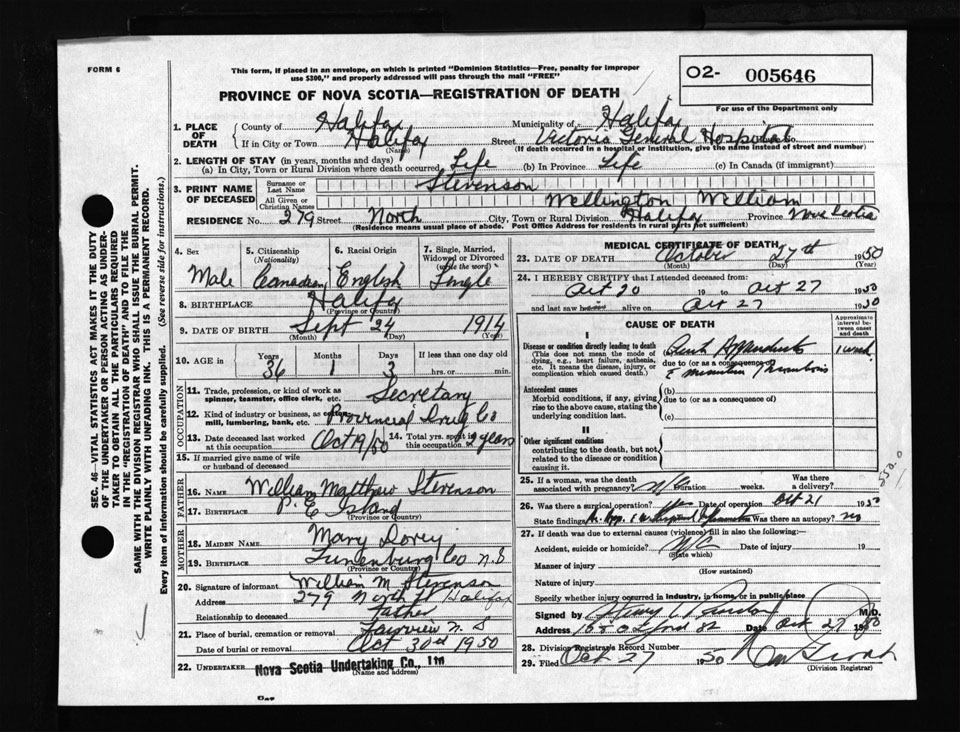 FORM 6
This form, if placed in an envelope, on which is printed "Dominion Statistics—Free, penalty for improper
use $300," and properly addressed will pass through the mail "FREE"
PROVINCE OF NOVA SCOTIA—REGISTRATION OF DEATH
O2- 005646
For use of the Department only
SEC. 46—VITAL STATISTICS ACT MAKES IT THE DUTY
OF THE UNDERTAKER OR PERSON ACTING AS UNDER-
TAKER TO OBTAIN ALL THE PARTICULARS REQUIRED
IN THE "REGISTRATION OF DEATH" AND TO FILE THE
SAME WITH THE DIVISION REGISTRAR WHO SHALL ISSUE THE BURIAL PERMIT.
WRITE PLAINLY WITH UNFADING INK. THIS IS A PERMANENT RECORD.
Every item of information should be carefully supplied. (See reverse side for instructions.)
1. PLACE OF DEATH County of Halifax Municipality of Halifax
If in City or Town Halifax (Name) Street Victoria General Hospital No.
(If death occurred in a hospital or institution, give the name instead of street and number)
2. LENGTH OF STAY (in years, months and days)
(a) In City, Town or Rural Division where death occurred Life (b) In Province Life (c) In Canada (if immigrant)
3. PRINT NAME OF DECEASED Surname or Last Name Stevenson
All Given or Christian Names Wellington William
RESIDENCE No. 279 Street North City, Town or Rural Division Halifax Province Nova Scotia
(Residence means usual place of abode. Post Office Address for residents in rural parts not sufficient)
4. Sex Male
5. Citizenship (Nationality) Canadian
6. Racial Origin English
7. Single, Married, Widowed or Divorced (write the word) Single
8. BIRTHPLACE Halifax (Province or Country)
9. DATE OF BIRTH Sept 24 1914
(Month) (Day) (Year)
10. AGE IN Years 36 Months 1 Days 3 If less than one day old hrs. or min.
OCCUPATION
11. Trade, profession, or kind of work as spinner, teamster, office clerk, etc. Secretary
12. Kind of industry or business, as cotton mill, lumbering, bank, etc. Provincial Drug Co
13. Date deceased last worked at this occupation Oct 19/50
14. Total yrs. spent in this occupation years
15. If married give name of wife or husband of deceased
FATHER
16. Name William Matthew Stevenson
17. Birthplace P. E Island
(Province or Country)
MOTHER
18. Maiden Name Mary Dorey
19. Birthplace Lunenburg Co N.S
(Province or Country)
20. Signature of informant William M Stevenson
Address 279 North St Halifax
Relationship to deceased Father
21. Place of burial, cremation or removal Fairview N. S
Date of burial or removal Oct 30th 1950
22. UNDERTAKER Nova Scotia Undertaking Co., Ltd
(Name and address)
MEDICAL CERTIFICATE OF DEATH
23. DATE OF DEATH October 27th 1950
(Month) (Day) (Year)
24. I HEREBY CERTIFY that I attended deceased from:
Oct 20 19 to Oct 27 1950
and last saw h alive on Oct 27 1950
CAUSE OF DEATH
Approximate interval between onset and death
I
Disease or condition directly leading to death
(This does not mean the mode of dying, e.g., heart failure, asthenia, etc. It means the disease, injury, or complication which caused death.)
Acute Appendicitis 1 week
due to (or as a consequence of)
Thrombosis
Antecedent causes
Morbid conditions, if any, giving rise to the above cause, stating the underlying condition last.
(b)
due to (or as a consequence of)
(c)
II
Other significant conditions
contributing to the death, but not related to the disease or condition causing it.
550.0
25. If a woman, was the death associated with pregnancy? Duration weeks. Was there a delivery?
26. Was there a surgical operation? yes Date of operation Oct 21 1950
State findings Was there an autopsy? no
27. If death was due to external causes (violence) fill in also the following:
Accident, suicide or homicide? (State which) Date of injury 19
Manner of injury
(How sustained)
Nature of injury
Specify whether injury occurred in industry, in home, or in public place
Signed by M.D.
Address Date Oct 27 1950
28. Division Registrar's Record Number
29. Filed Oct 27 1950
(Division Registrar)